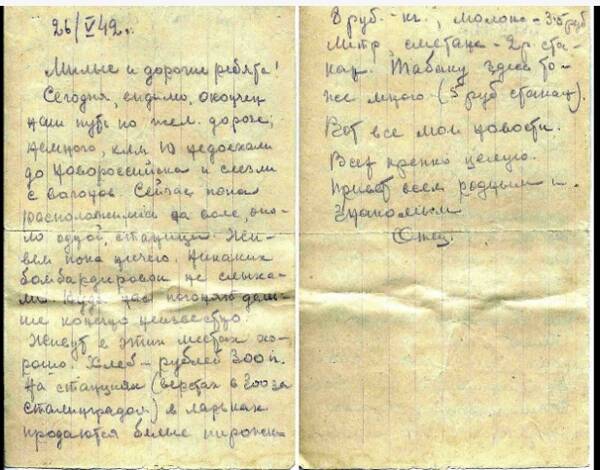 26/V 42 г.
Милые и дорогие ребята!
Сегодня, видимо, окончен
наш путь по жел. дороге;
немного, клм 10 недоехали
до Новороссийска и слезли
с вагонов. Сейчас пока
расположились на воле, око-
ло одной станицы. Жи-
вем пока ничего. Никаких
бомбардировок не слыха-
ли. Куда нас погонят даль-
ше конечно неизвестно.
Живут в этих местах хо-
рошо. Хлеб - рублей 300 п.
На станциях (верстах в 200 за
Сталинградом) в ларьках
продаются белые пирожки
8 руб. - кг., молоко - 35 руб
литр, сметана - 2р. ста-
кан. Табаку здесь то-
же много (5 руб стакан).
Вот все мои новости.
Всех крепко целую.
Привет всем родным и
знакомым
Отец.